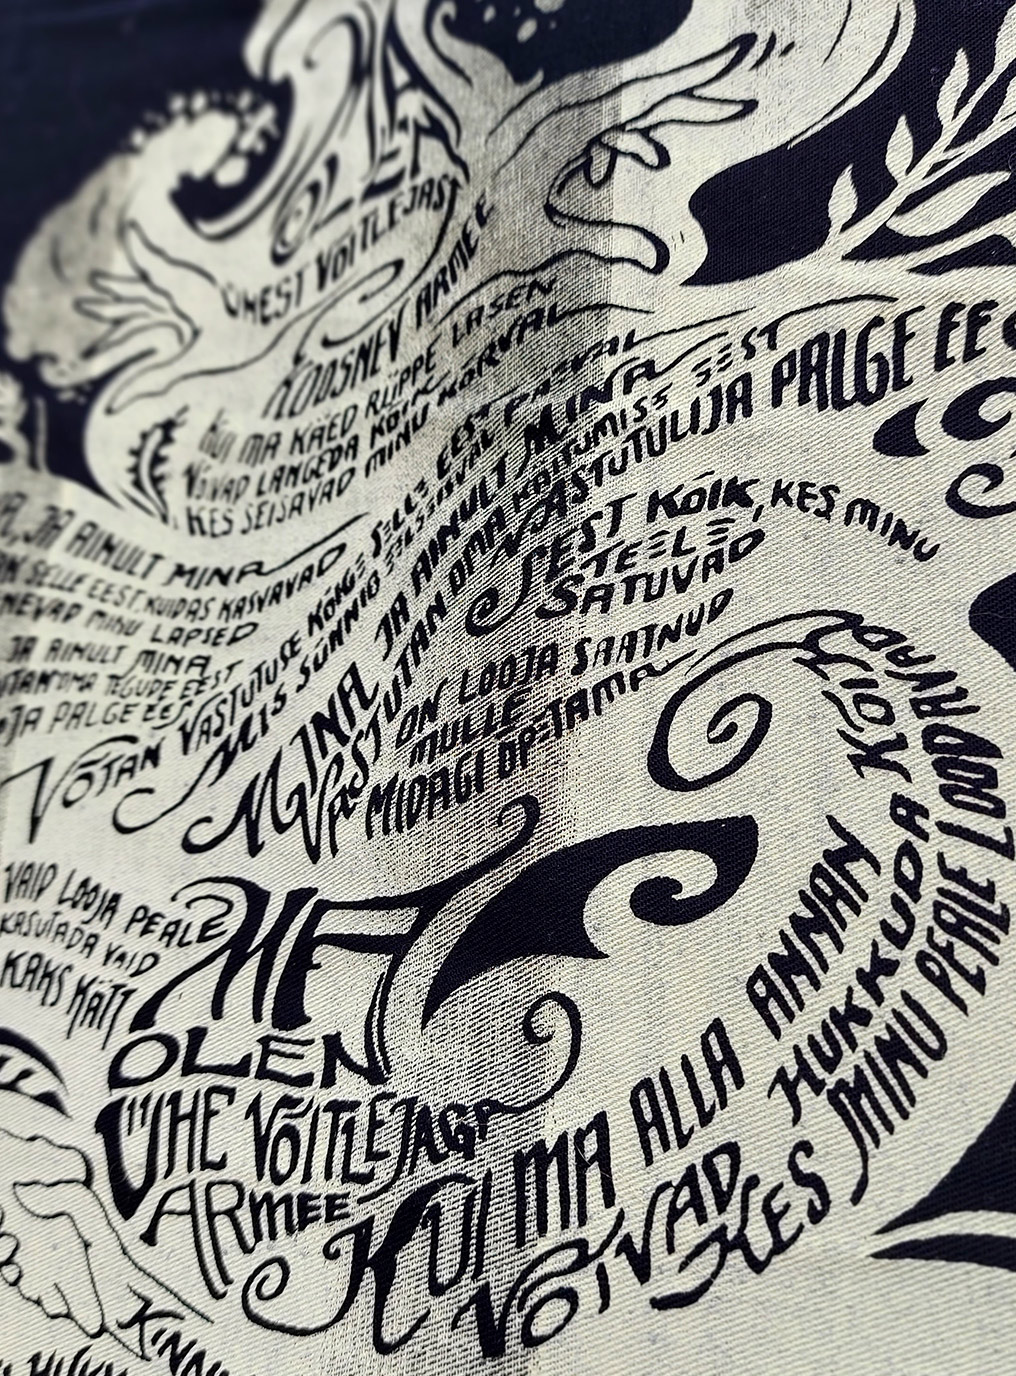 OLEN
ÜHEST VÕITLEJAST
KOOSNEV ARMEE
KUI MA KÄED RÜPPE LASEN
VÕIVAD LANGEDA KÕIK
KES SEISAVAD MINU KÕRVAL
JA AINULT MINA
SELLE EEST, KUIDAS KASVAVAD
MINU LAPSED
JA AINULT MINA
OMA TEGUDE EEST
JA PALGE EES
VÕTAN VASTUTUSE KÕIGE SELLE EEST
MIS SÜNNIB
MINA JA AINULT MINA
VASTUTAN OMA KÄITUMISE EEST
VASTUTULIJA PALGE EES
SEST KÕIK, KES MINU
TEELE
SATUVAD
ON LOOJA SAATNUD
MULLE
MIDAGI ÕPETAMA
VAID LOOJA PEALE
KASUTADA VAID
KAKS KÄTT
MA
OLEN
ÜHE VÕITLEJAGA
ARMEE
KUI MA ALLA ANNAN
VÕIVAD HUKKUDA KÕIK
KES MINU PEALE LOODAVAD